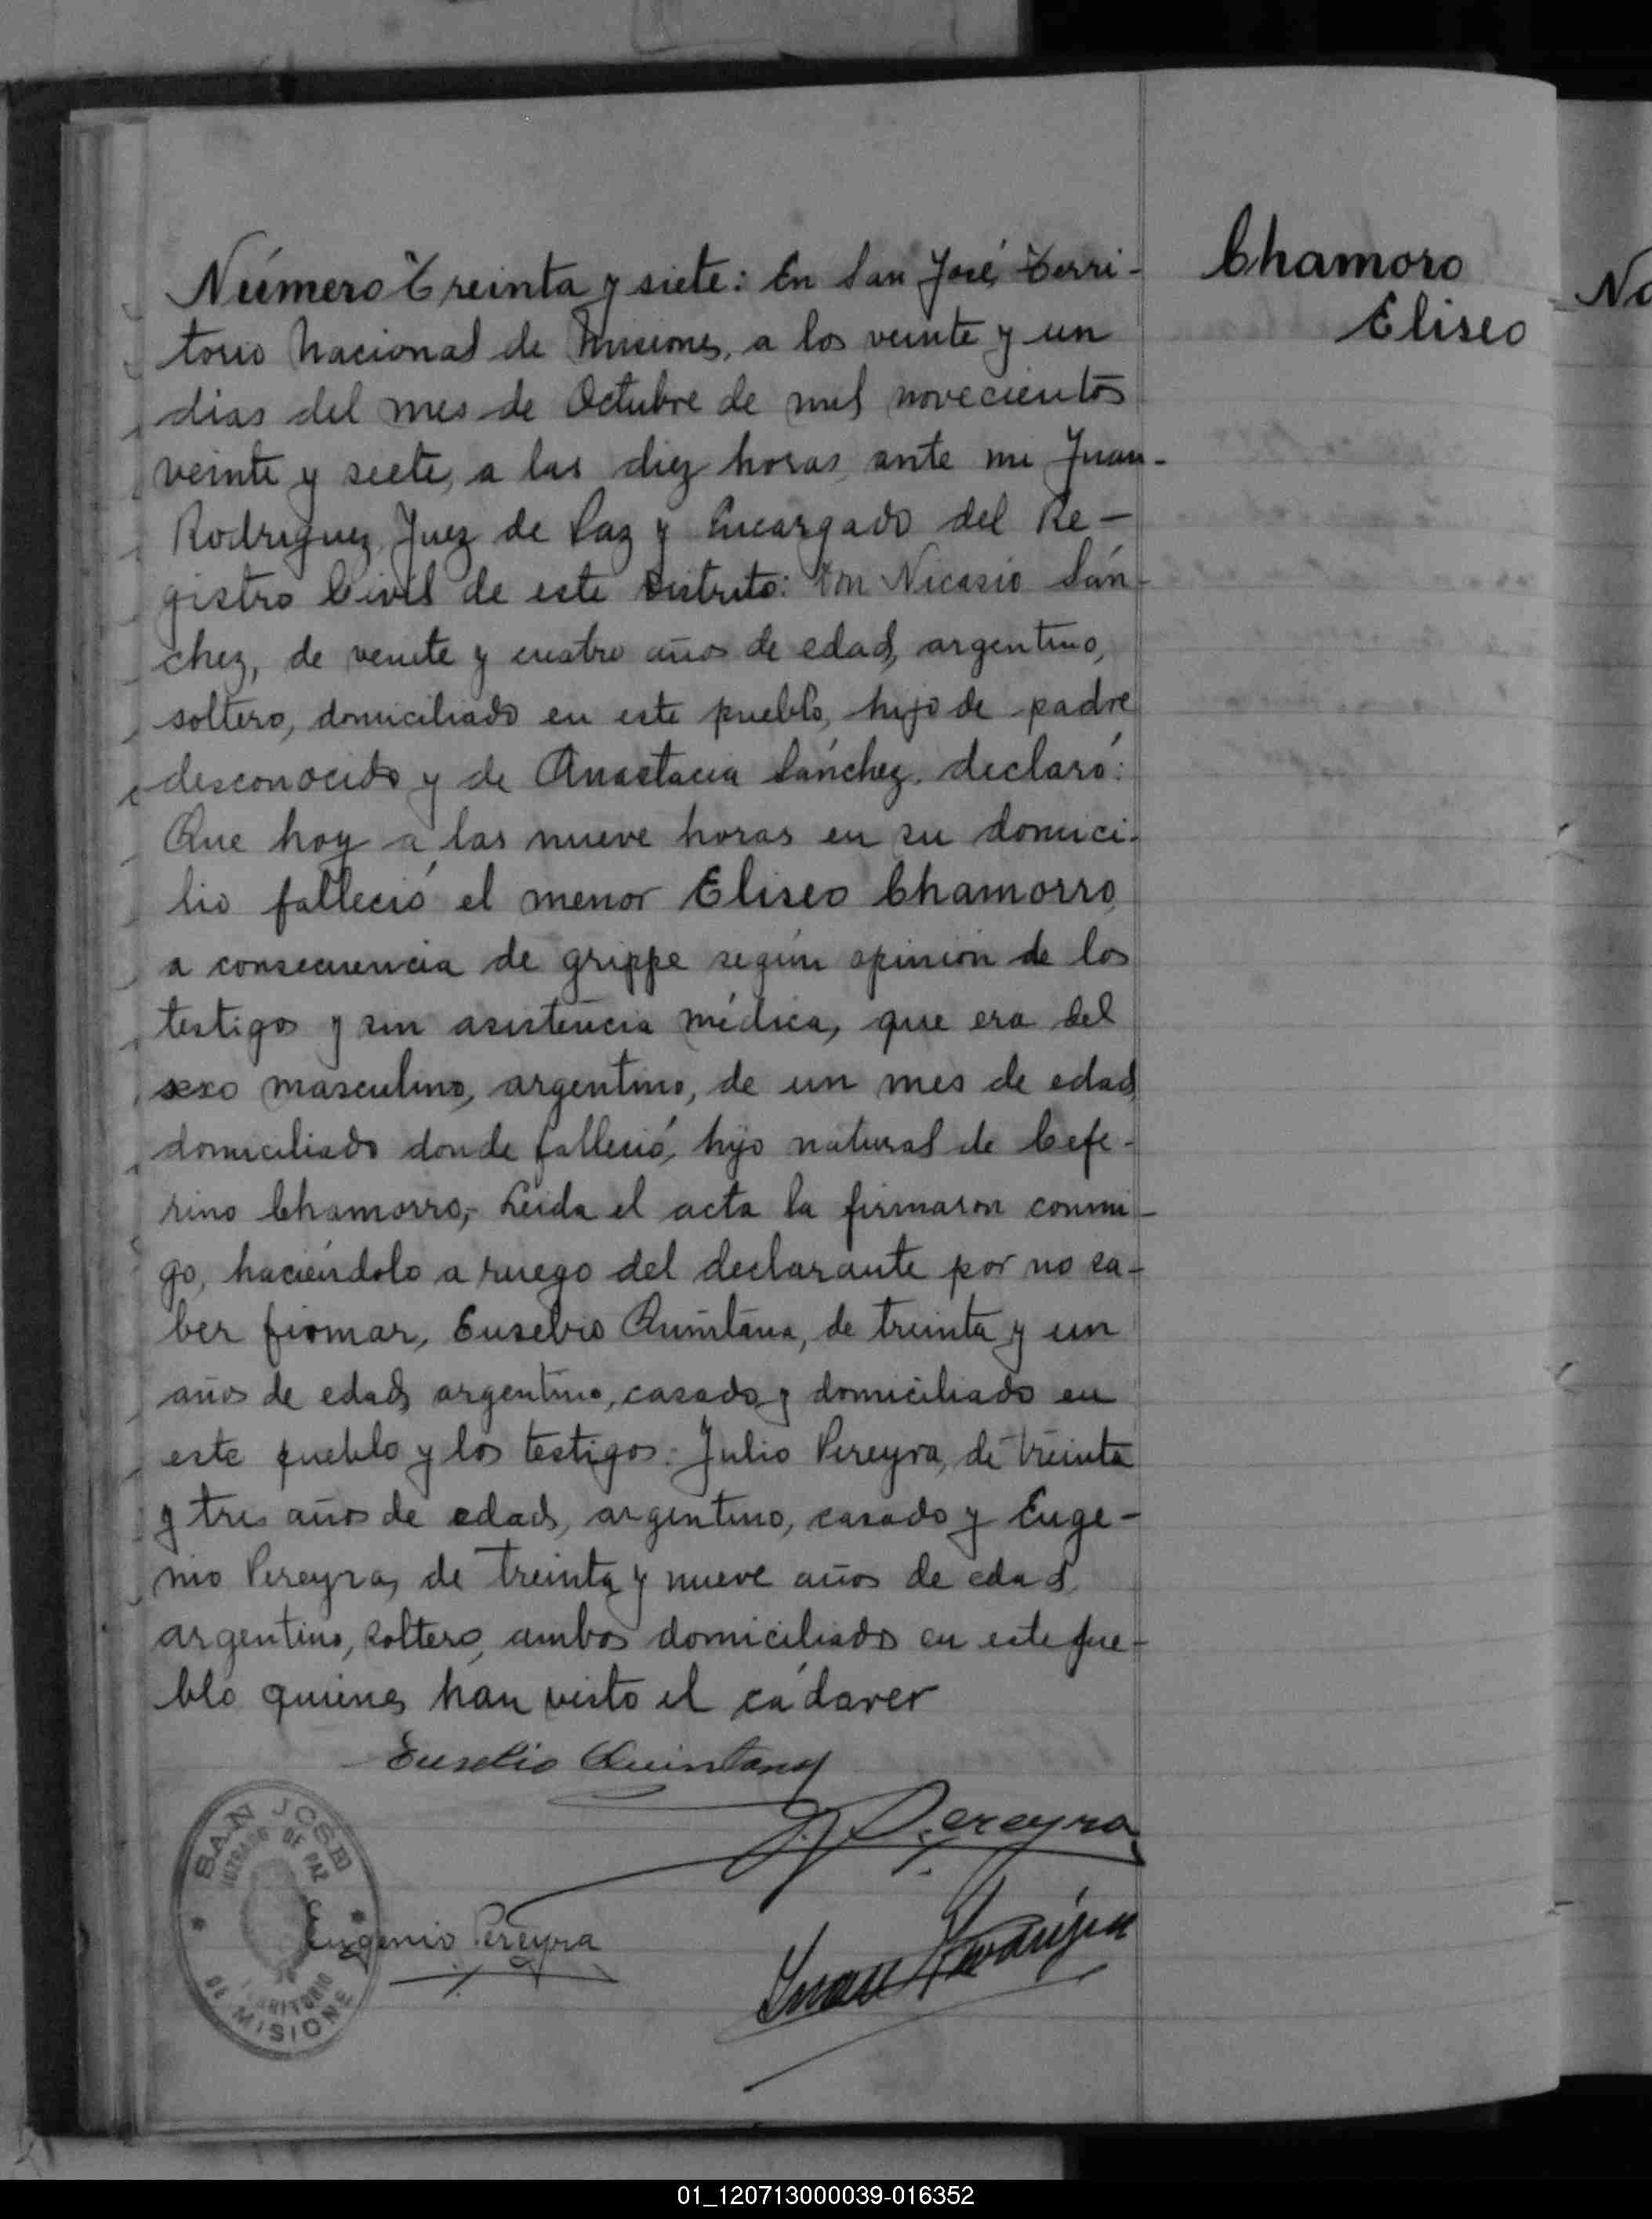 Número Treinta y siete: En San José, Terri-
torio Nacional de Misiones, a los veinte y un
dias del mes de Octubre de mil novecientos
veinte y siete, a las diez horas, ante mi Juan
Rodriguez, Juez de Paz y Encargado del Re-
gistro Civil de este Distrito: Don Nicasio Sán-
chez, de veinte y cuatro años de edad, argentino,
soltero, domiciliado en este pueblo, hijo de padre
desconocido y de Anastacia Sánchez, declaró:
Que hoy a las nueve horas en su domici-
lio falleció el menor Eliseo Chamorro,
a consecuencia de grippe según opinión de los
testigos y sin asistencia médica, que era del
sexo masculino, argentino, de un mes de edad,
domiciliado donde falleció, hijo natural de Cefe-
rino Chamorro,- Leida el acta la firmaron conmi-
go, haciéndolo a ruego del declarante por no sa-
ber firmar, Eusebio Quintana, de treinta y un
años de edad, argentino, casado y domiciliado en
este pueblo y los testigos: Julio Pereyra, de treinta
y tres años de edad, argentino, casado y Euge-
nio Pereyra, de treinta y nueve años de edad,
argentino, soltero, ambos domiciliados en este pue-
blo quienes han visto el cádaver
Eusebio Quintana
J. Pereyra
Eugenio Pereyra
Juan Rodríguez
Chamoro
Eliseo
No
SAN JOSE
JUZGADO DE PAZ
TERRITORIO
DE MISIONES
01_120713000039-016352